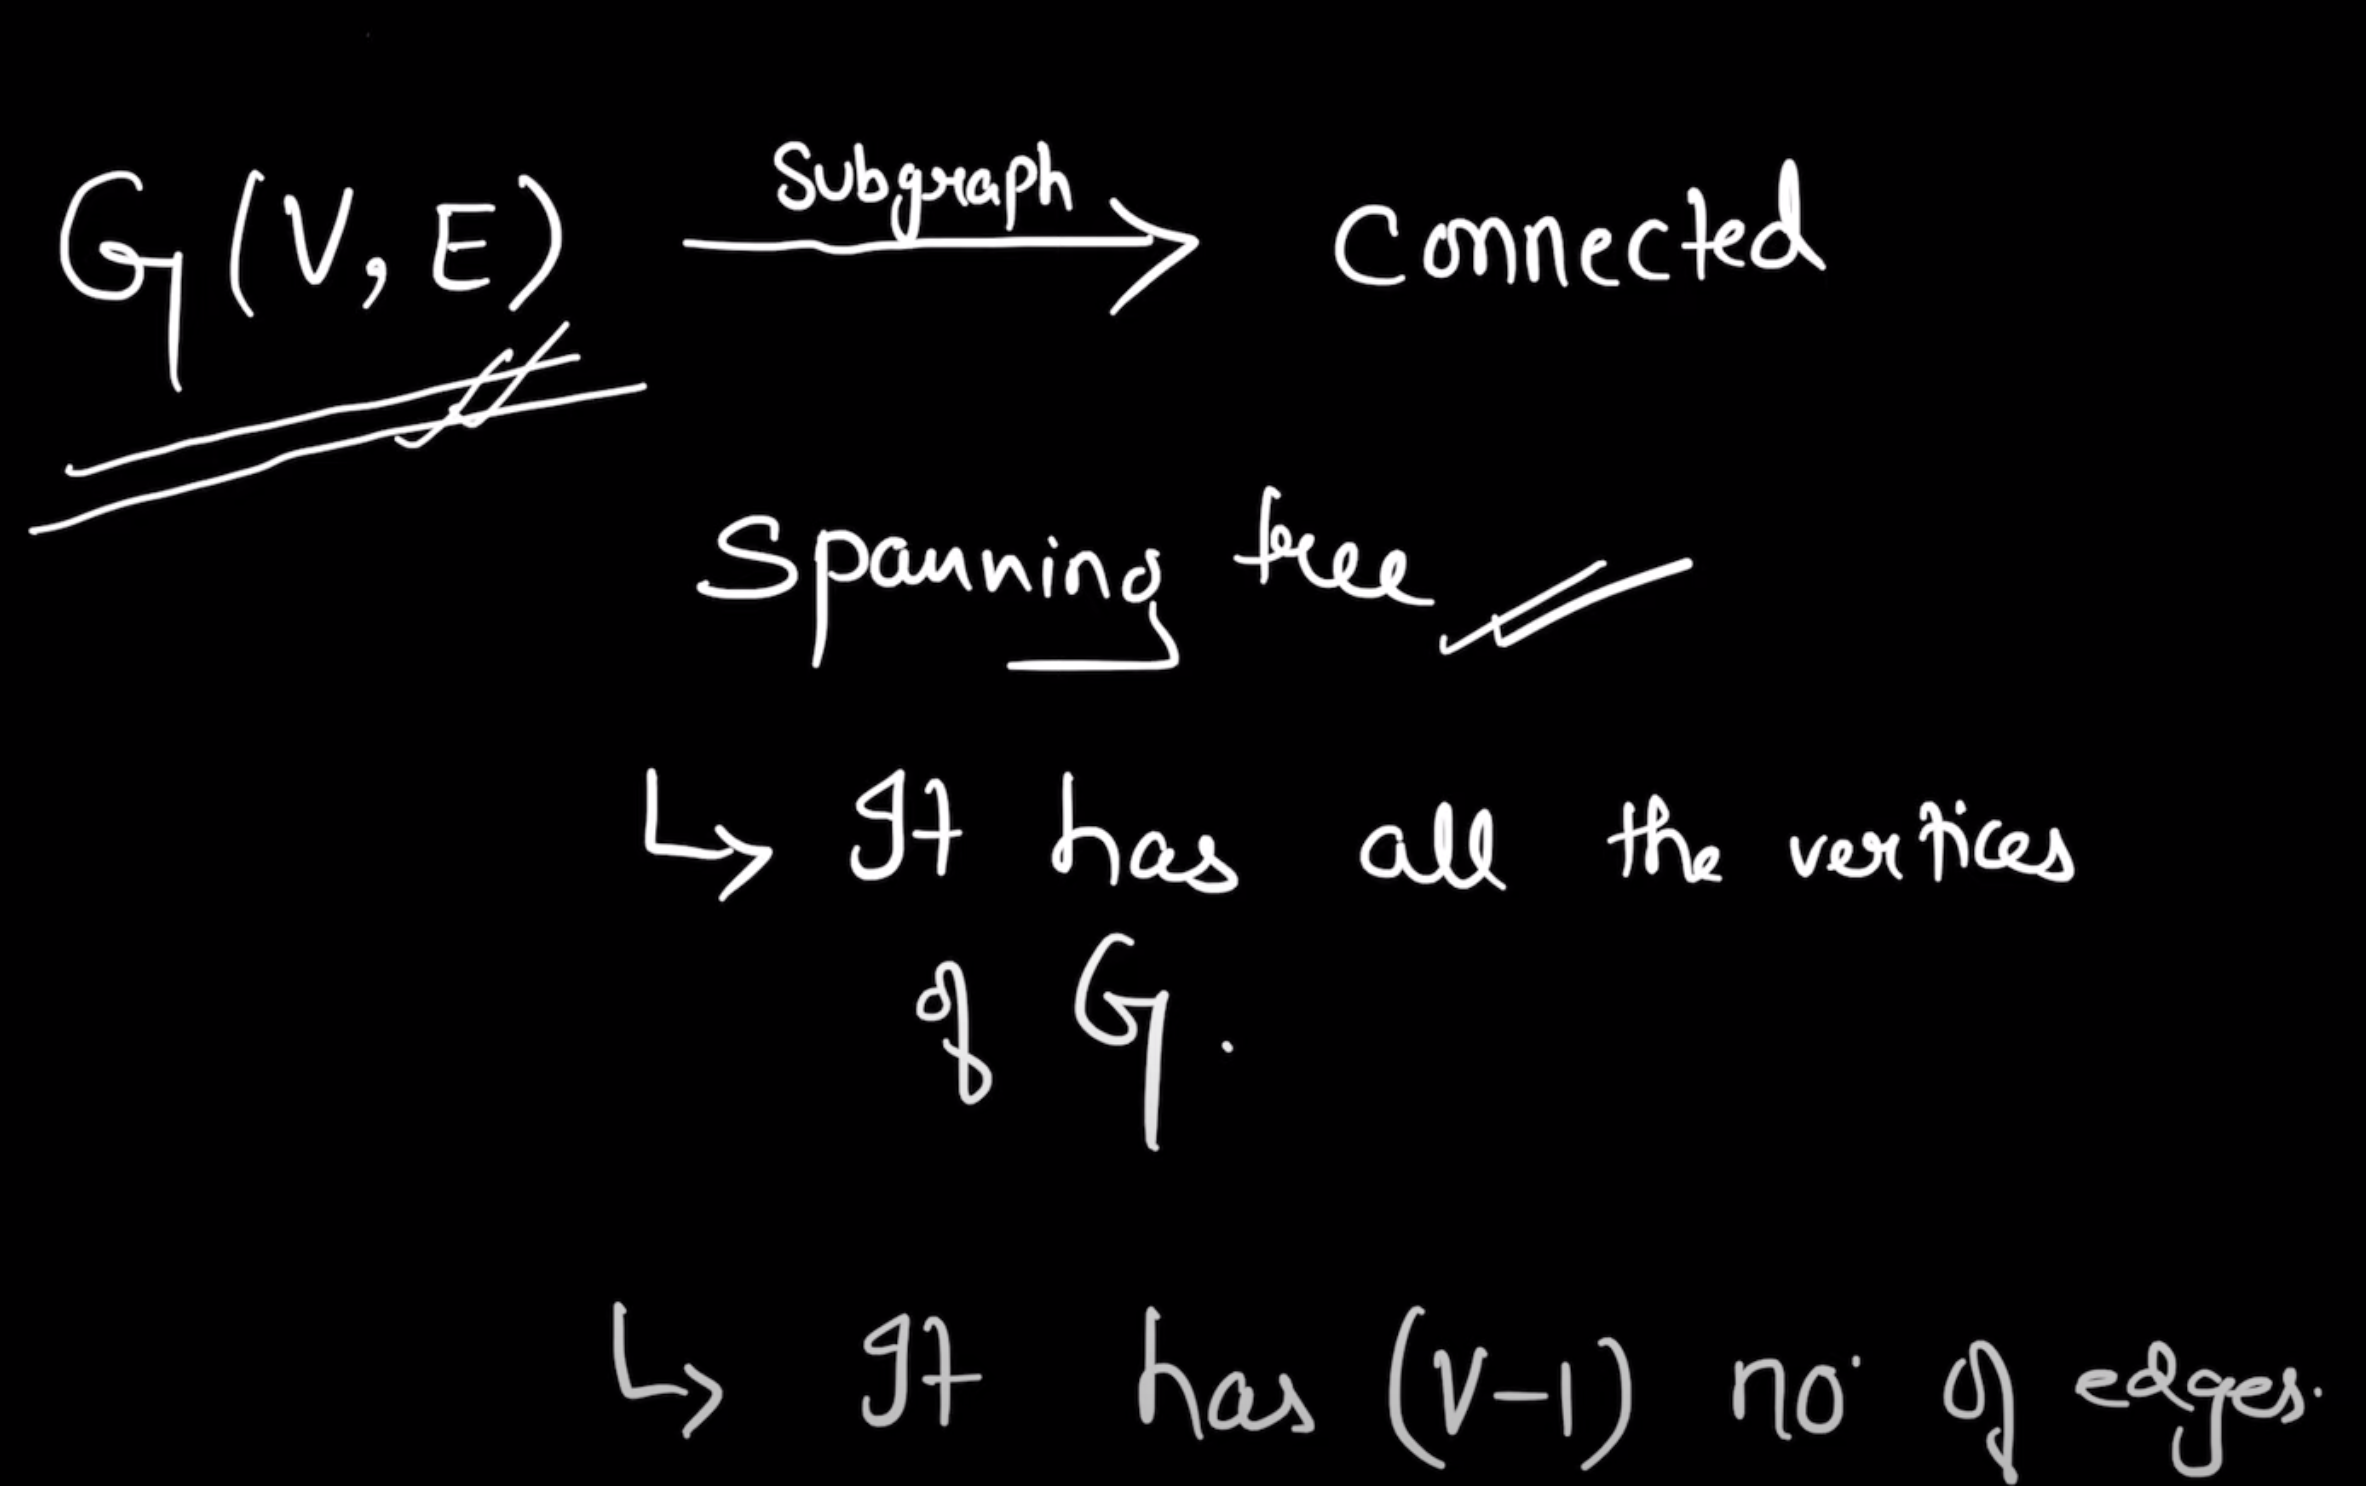 G(V, E) Subgraph Connected
Spanning tree
It has all the vertices
of G.
It has (V-1) no. of edges.